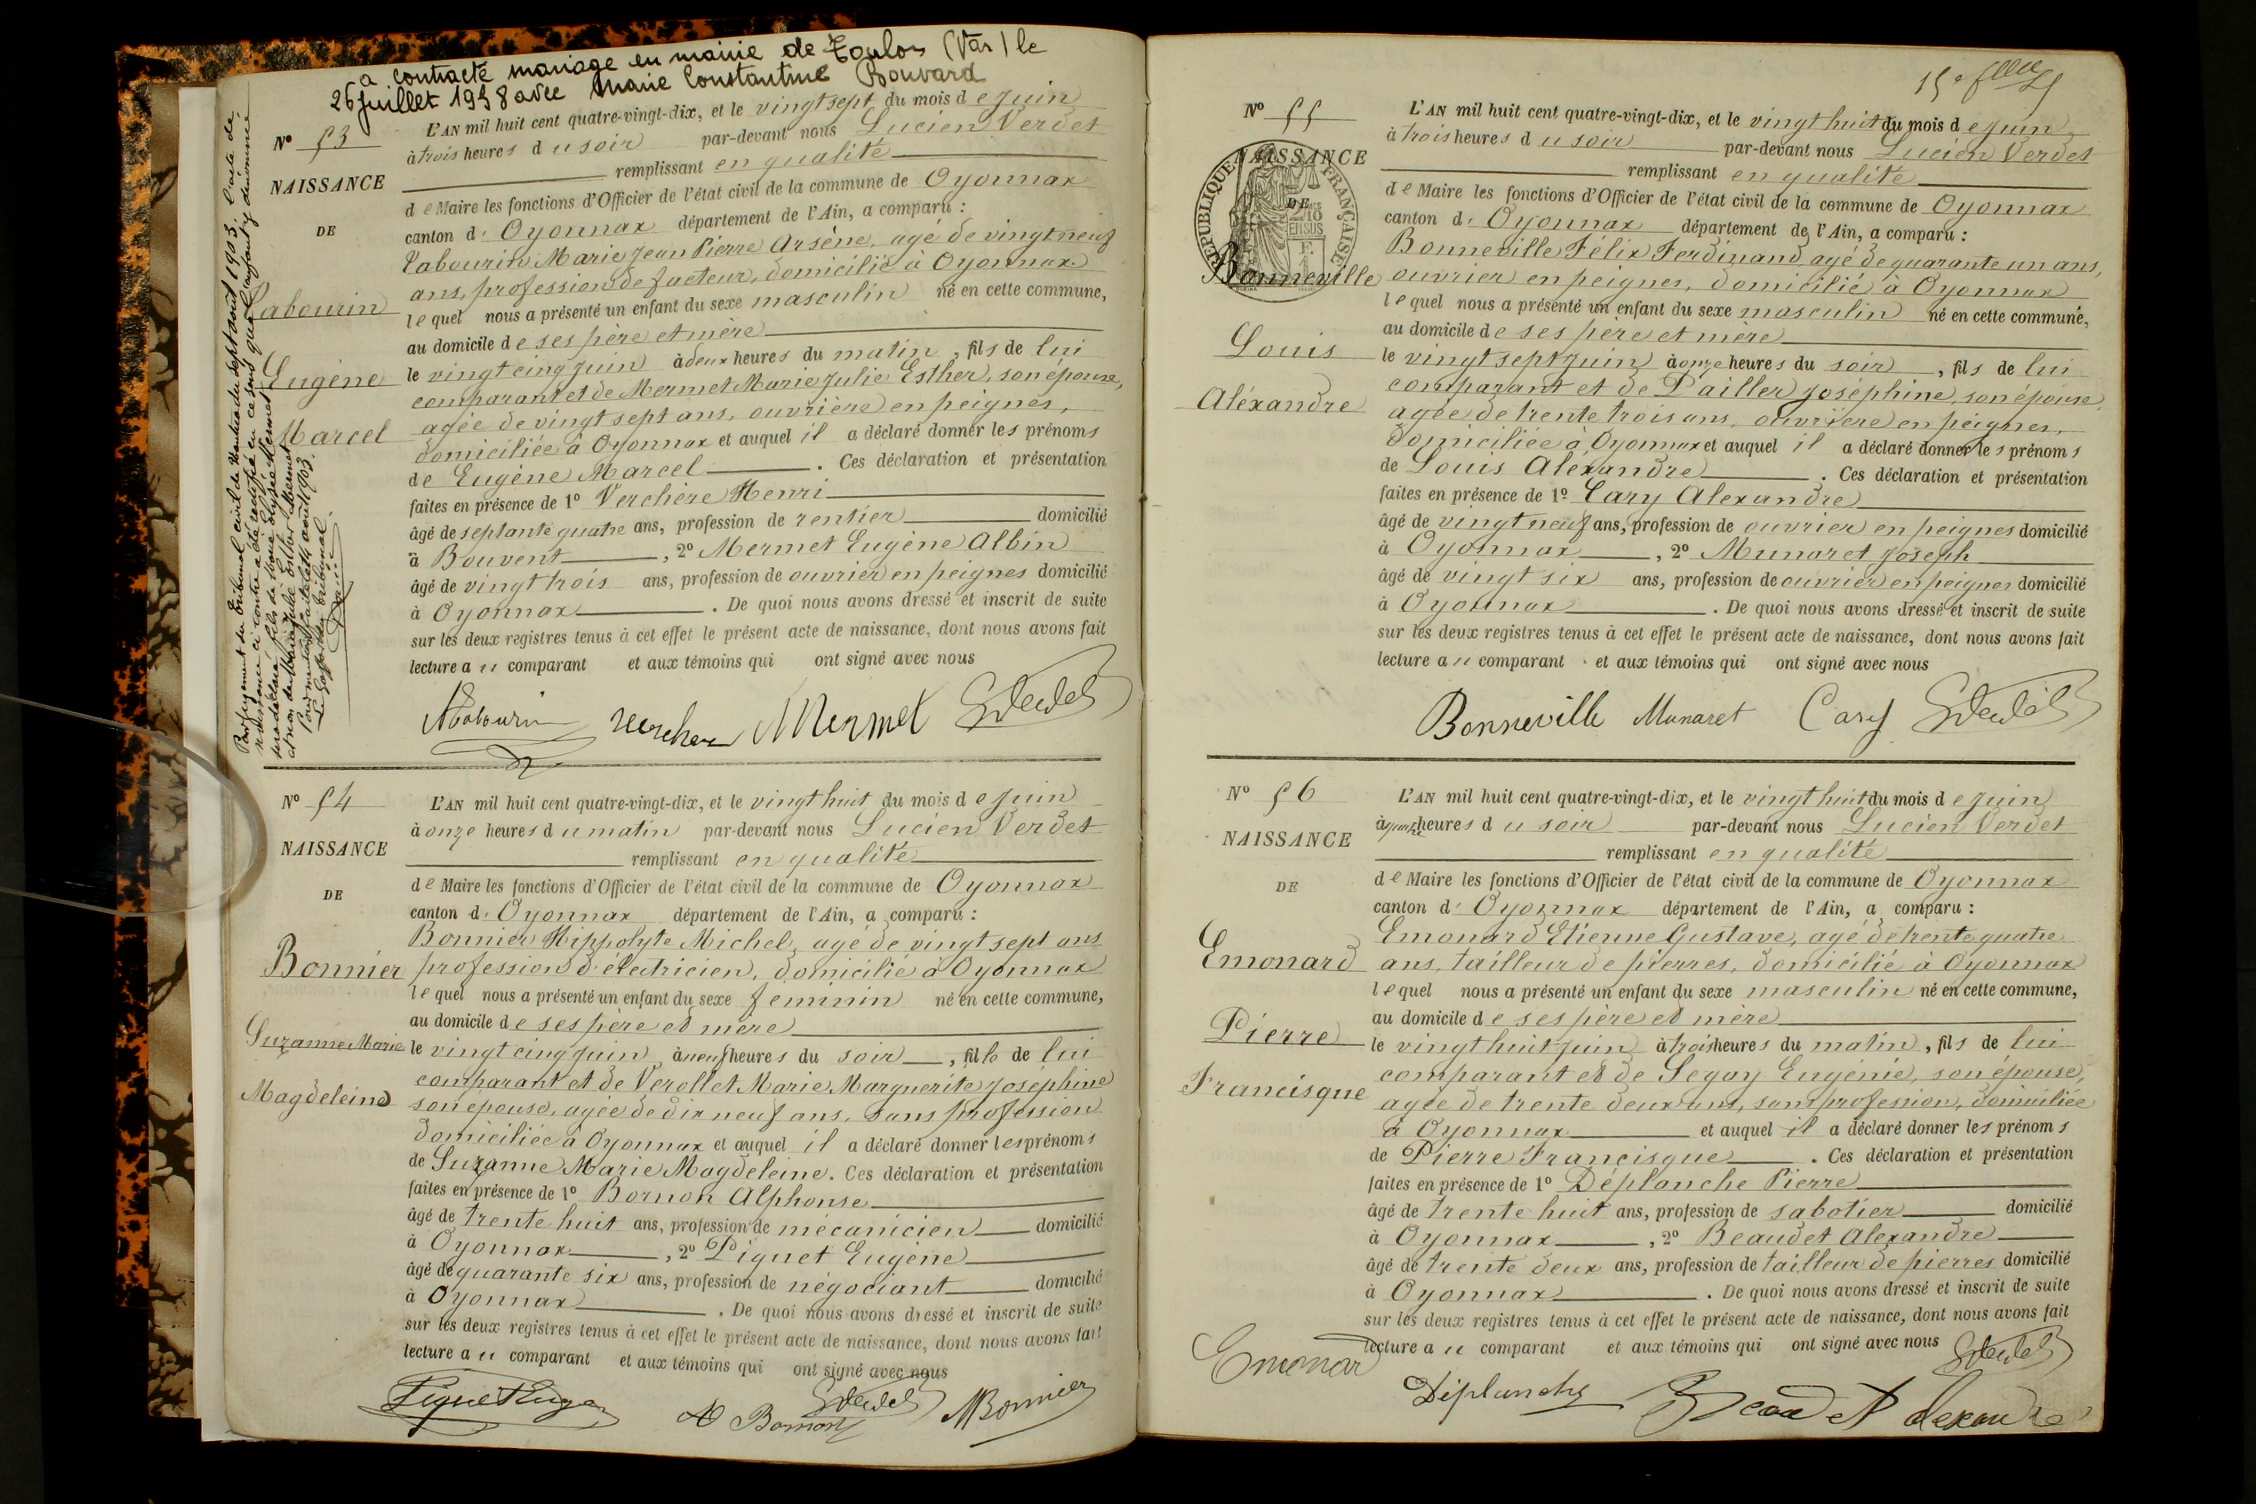 a contracté mariage en mairie de Toulon (Var) le
26 juillet 1938 avec Marie Constantine Bouvard
N° 53
NAISSANCE
DE
Labourin
Eugène
Marcel
L'AN mil huit cent quatre-vingt-dix, et le vingt sept du mois de juin
à trois heures du soir par-devant nous Lucien Verdet
remplissant en qualité
de Maire les fonctions d'Officier de l'état civil de la commune de Oyonnax
canton d' Oyonnax département de l'Ain, a comparu :
Labourin Marie Jean Pierre Arsène, agé de vingt neuf
ans, profession de facteur, domicilié à Oyonnax
lequel nous a présenté un enfant du sexe masculin né en cette commune,
au domicile de ses père et mère
le vingt cinq juin à deux heures du matin, fils de lui
comparant et de Mermet Marie Julie Esther, son épouse,
agée de vingt sept ans, ouvrière en peignes,
domiciliée à Oyonnax et auquel il a déclaré donner les prénoms
de Eugène Marcel. Ces déclaration et présentation
faites en présence de 1° Verchère Henri
âgé de septante quatre ans, profession de rentier domicilié
à Bouvent, 2° Mermet Eugène Albin
âgé de vingt trois ans, profession de ouvrier en peignes domicilié
à Oyonnax. De quoi nous avons dressé et inscrit de suite
sur les deux registres tenus à cet effet le présent acte de naissance, dont nous avons fait
lecture au comparant et aux témoins qui ont signé avec nous
Labourin Verchere Mermet Verdet
Par jugement du tribunal civil de Nantua du sept août 1903, l'acte de
naissance ci contre a été rectifié en ce sens que l'enfant y dénommé
sera déclaré fils de Marie Mermet
et non de Marie Julie Esther Mermet
Pour mention faite le août 1903.
Le Greffier du tribunal.
N° 54
NAISSANCE
DE
Bonnier
Suzanne Marie
Magdeleine
L'AN mil huit cent quatre-vingt-dix, et le vingt huit du mois de juin
à onze heures du matin par-devant nous Lucien Verdet
remplissant en qualité
de Maire les fonctions d'Officier de l'état civil de la commune de Oyonnax
canton d' Oyonnax département de l'Ain, a comparu :
Bonnier Hippolyte Michel, agé de vingt sept ans
profession d'électricien, domicilié à Oyonnax
lequel nous a présenté un enfant du sexe féminin né en cette commune,
au domicile de ses père et mère
le vingt cinq juin, à neuf heures du soir, fille de lui
comparant et de Verollet Marie Marguerite Joséphine
son épouse, agée de dix neuf ans, sans profession
domiciliée à Oyonnax et auquel il a déclaré donner les prénoms
de Suzanne Marie Magdeleine. Ces déclaration et présentation
faites en présence de 1° Bornon Alphonse
âgé de trente huit ans, profession de mécanicien domicilié
à Oyonnax, 2° Piquet Eugène
âgé de quarante six ans, profession de négociant domicilié
à Oyonnax. De quoi nous avons dressé et inscrit de suite
sur les deux registres tenus à cet effet le présent acte de naissance, dont nous avons fait
lecture au comparant et aux témoins qui ont signé avec nous
Piquet Eugène A Bornon Verdet Bonnier
N° 55
NAISSANCE
DE
RÉPUBLIQUE FRANÇAISE
Bonneville
Louis
Aléxandre
L'AN mil huit cent quatre-vingt-dix, et le vingt huit du mois de juin
à trois heures du soir par-devant nous Lucien Verdet
remplissant en qualité
de Maire les fonctions d'Officier de l'état civil de la commune de Oyonnax
canton d' Oyonnax département de l'Ain, a comparu :
Bonneville Félix Ferdinand, agé de quarante un ans,
ouvrier en peignes, domicilié à Oyonnax
lequel nous a présenté un enfant du sexe masculin né en cette commune,
au domicile de ses père et mère
le vingt sept juin à onze heures du soir, fils de lui
comparant et de Pailler Joséphine, son épouse,
agée de trente trois ans, ouvrière en peignes,
domiciliée à Oyonnax et auquel il a déclaré donner les prénoms
de Louis Aléxandre. Ces déclaration et présentation
faites en présence de 1° Cary Alexandre
âgé de vingt neuf ans, profession de ouvrier en peignes domicilié
à Oyonnax, 2° Munaret Joseph
âgé de vingt six ans, profession de ouvrier en peignes domicilié
à Oyonnax. De quoi nous avons dressé et inscrit de suite
sur les deux registres tenus à cet effet le présent acte de naissance, dont nous avons fait
lecture au comparant et aux témoins qui ont signé avec nous
Bonneville Munaret Cary Verdet
N° 56
NAISSANCE
DE
Emonard
Pierre
Francisque
L'AN mil huit cent quatre-vingt-dix, et le vingt huit du mois de juin
à heures du soir par-devant nous Lucien Verdet
remplissant en qualité
de Maire les fonctions d'Officier de l'état civil de la commune de Oyonnax
canton d' Oyonnax département de l'Ain, a comparu :
Emonard Etienne Gustave, agé de trente quatre
ans, tailleur de pierres, domicilié à Oyonnax
lequel nous a présenté un enfant du sexe masculin né en cette commune,
au domicile de ses père et mère
le vingt huit juin à trois heures du matin, fils de lui
comparant et de Segay Eugénie, son épouse,
agée de trente deux ans, sans profession, domiciliée
à Oyonnax et auquel il a déclaré donner les prénoms
de Pierre Francisque. Ces déclaration et présentation
faites en présence de 1° Déplanche Pierre
âgé de trente huit ans, profession de sabotier domicilié
à Oyonnax, 2° Beaudet Alexandre
âgé de trente deux ans, profession de tailleur de pierres domicilié
à Oyonnax. De quoi nous avons dressé et inscrit de suite
sur les deux registres tenus à cet effet le présent acte de naissance, dont nous avons fait
lecture au comparant et aux témoins qui ont signé avec nous
Emonard Déplanche Beaudet Alexandre Verdet